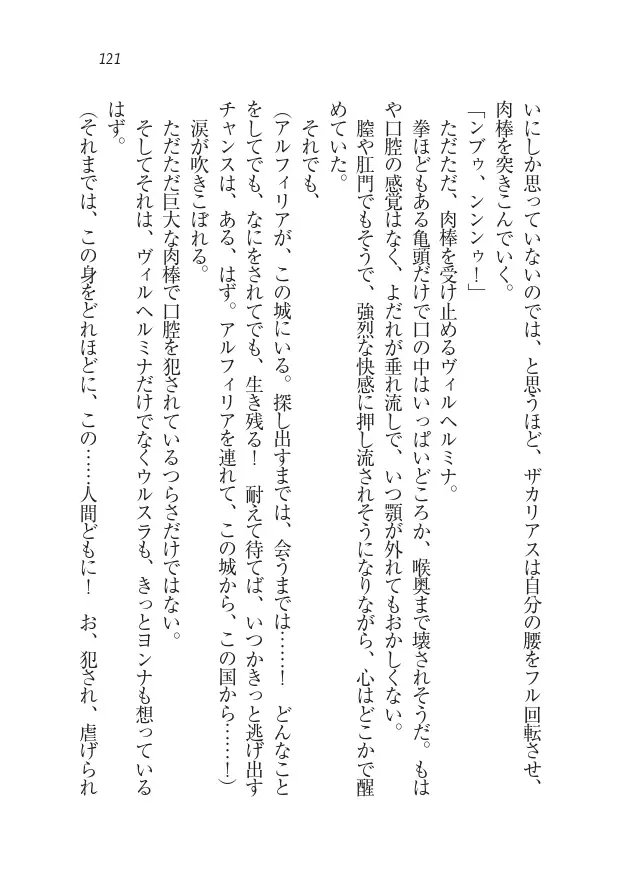 121
いにしか思っていないのでは、と思うほど、ザカリアスは自分の腰をフル回転させ、
肉棒を突きこんでいく。
「ンブゥ、ンンンゥ！」
ただただ、肉棒を受け止めるヴィルヘルミナ。
拳ほどもある亀頭だけで口の中はいっぱいどころか、喉奥まで壊されそうだ。もは
や口腔の感覚はなく、よだれが垂れ流しで、いつ顎が外れてもおかしくない。
膣や肛門でもそうで、強烈な快感に押し流されそうになりながら、心はどこかで醒
めていた。
それでも、
（アルフィリアが、この城にいる。探し出すまでは、会うまでは……！　どんなこと
をしてでも、なにをされてでも、生き残る！　耐えて待てば、いつかきっと逃げ出す
チャンスは、ある、はず。アルフィリアを連れて、この城から、この国から……！）
涙が吹きこぼれる。
ただただ巨大な肉棒で口腔を犯されているつらさだけではない。
そしてそれは、ヴィルヘルミナだけでなくウルスラも、きっとヨンナも想っている
はず。
（それまでは、この身をどれほどに、この……人間どもに！　お、犯され、虐げられ